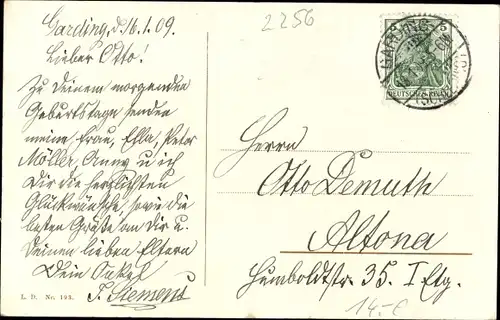 Garding, d. 16.1.09.
Lieber Otto!
Zu Deinem morgenden
Geburtstage senden
meine Frau, Ella, Peter
Möller, Anny u. ich
Dir die herzlichsten
Glückwünsche, sowie die
besten Grüße an Dir u.
Deinen lieben Eltern
Dein Onkel
L. D. Nr. 193.
2256
GARDING
DEUTSCHES REICH
Herrn
Otto Demuth
Altona
Humboldtstr. 35. I Etg.
14.-€